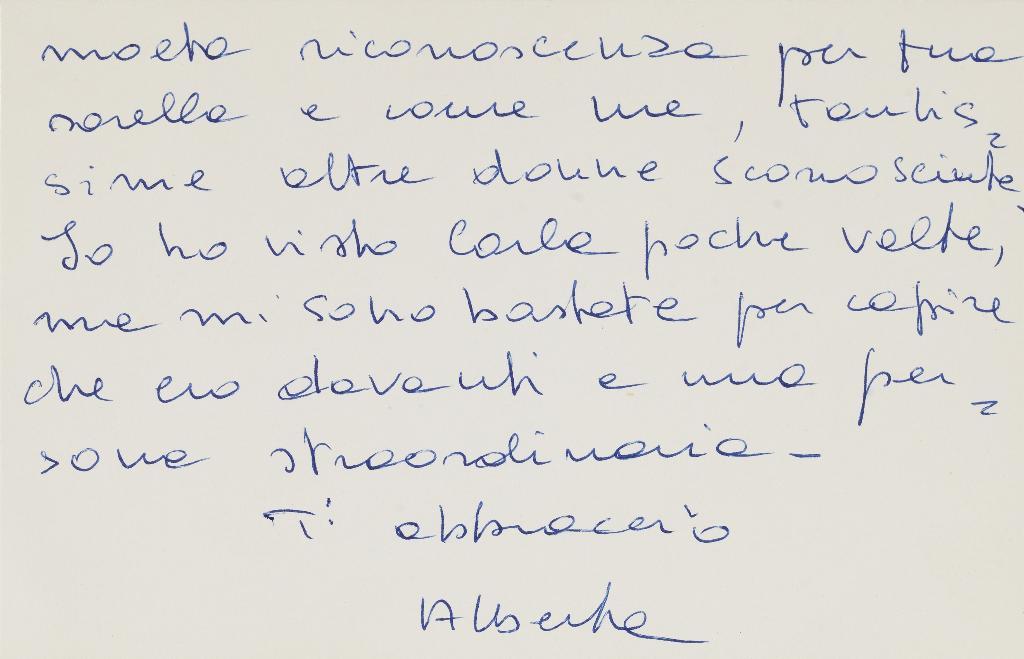 molta riconoscenza per tua
sorella e come me, tantis=
sime altre donne sconosciute.
Io ho visto Carla poche volte,
ma mi sono bastate per capire
che ero davanti a una per=
sona straordinaria -
Ti abbraccio
Alberta